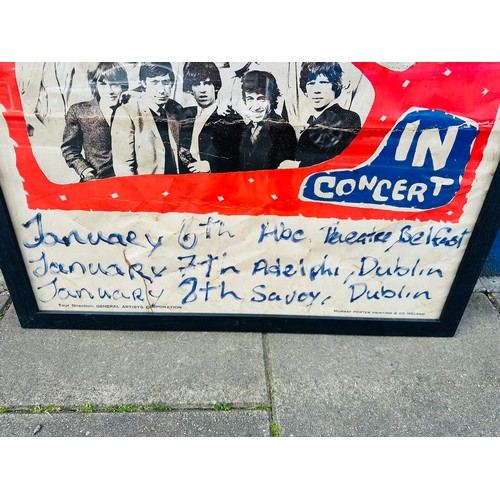 IN
CONCERT
January 6th Abc, Theatre, Belfast
January 7th Adelphi, Dublin
January 8th Savoy, Dublin
Tour Direction: GENERAL ARTISTS CORPORATION
MURRAY POSTER PRINTING & CO IRELAND